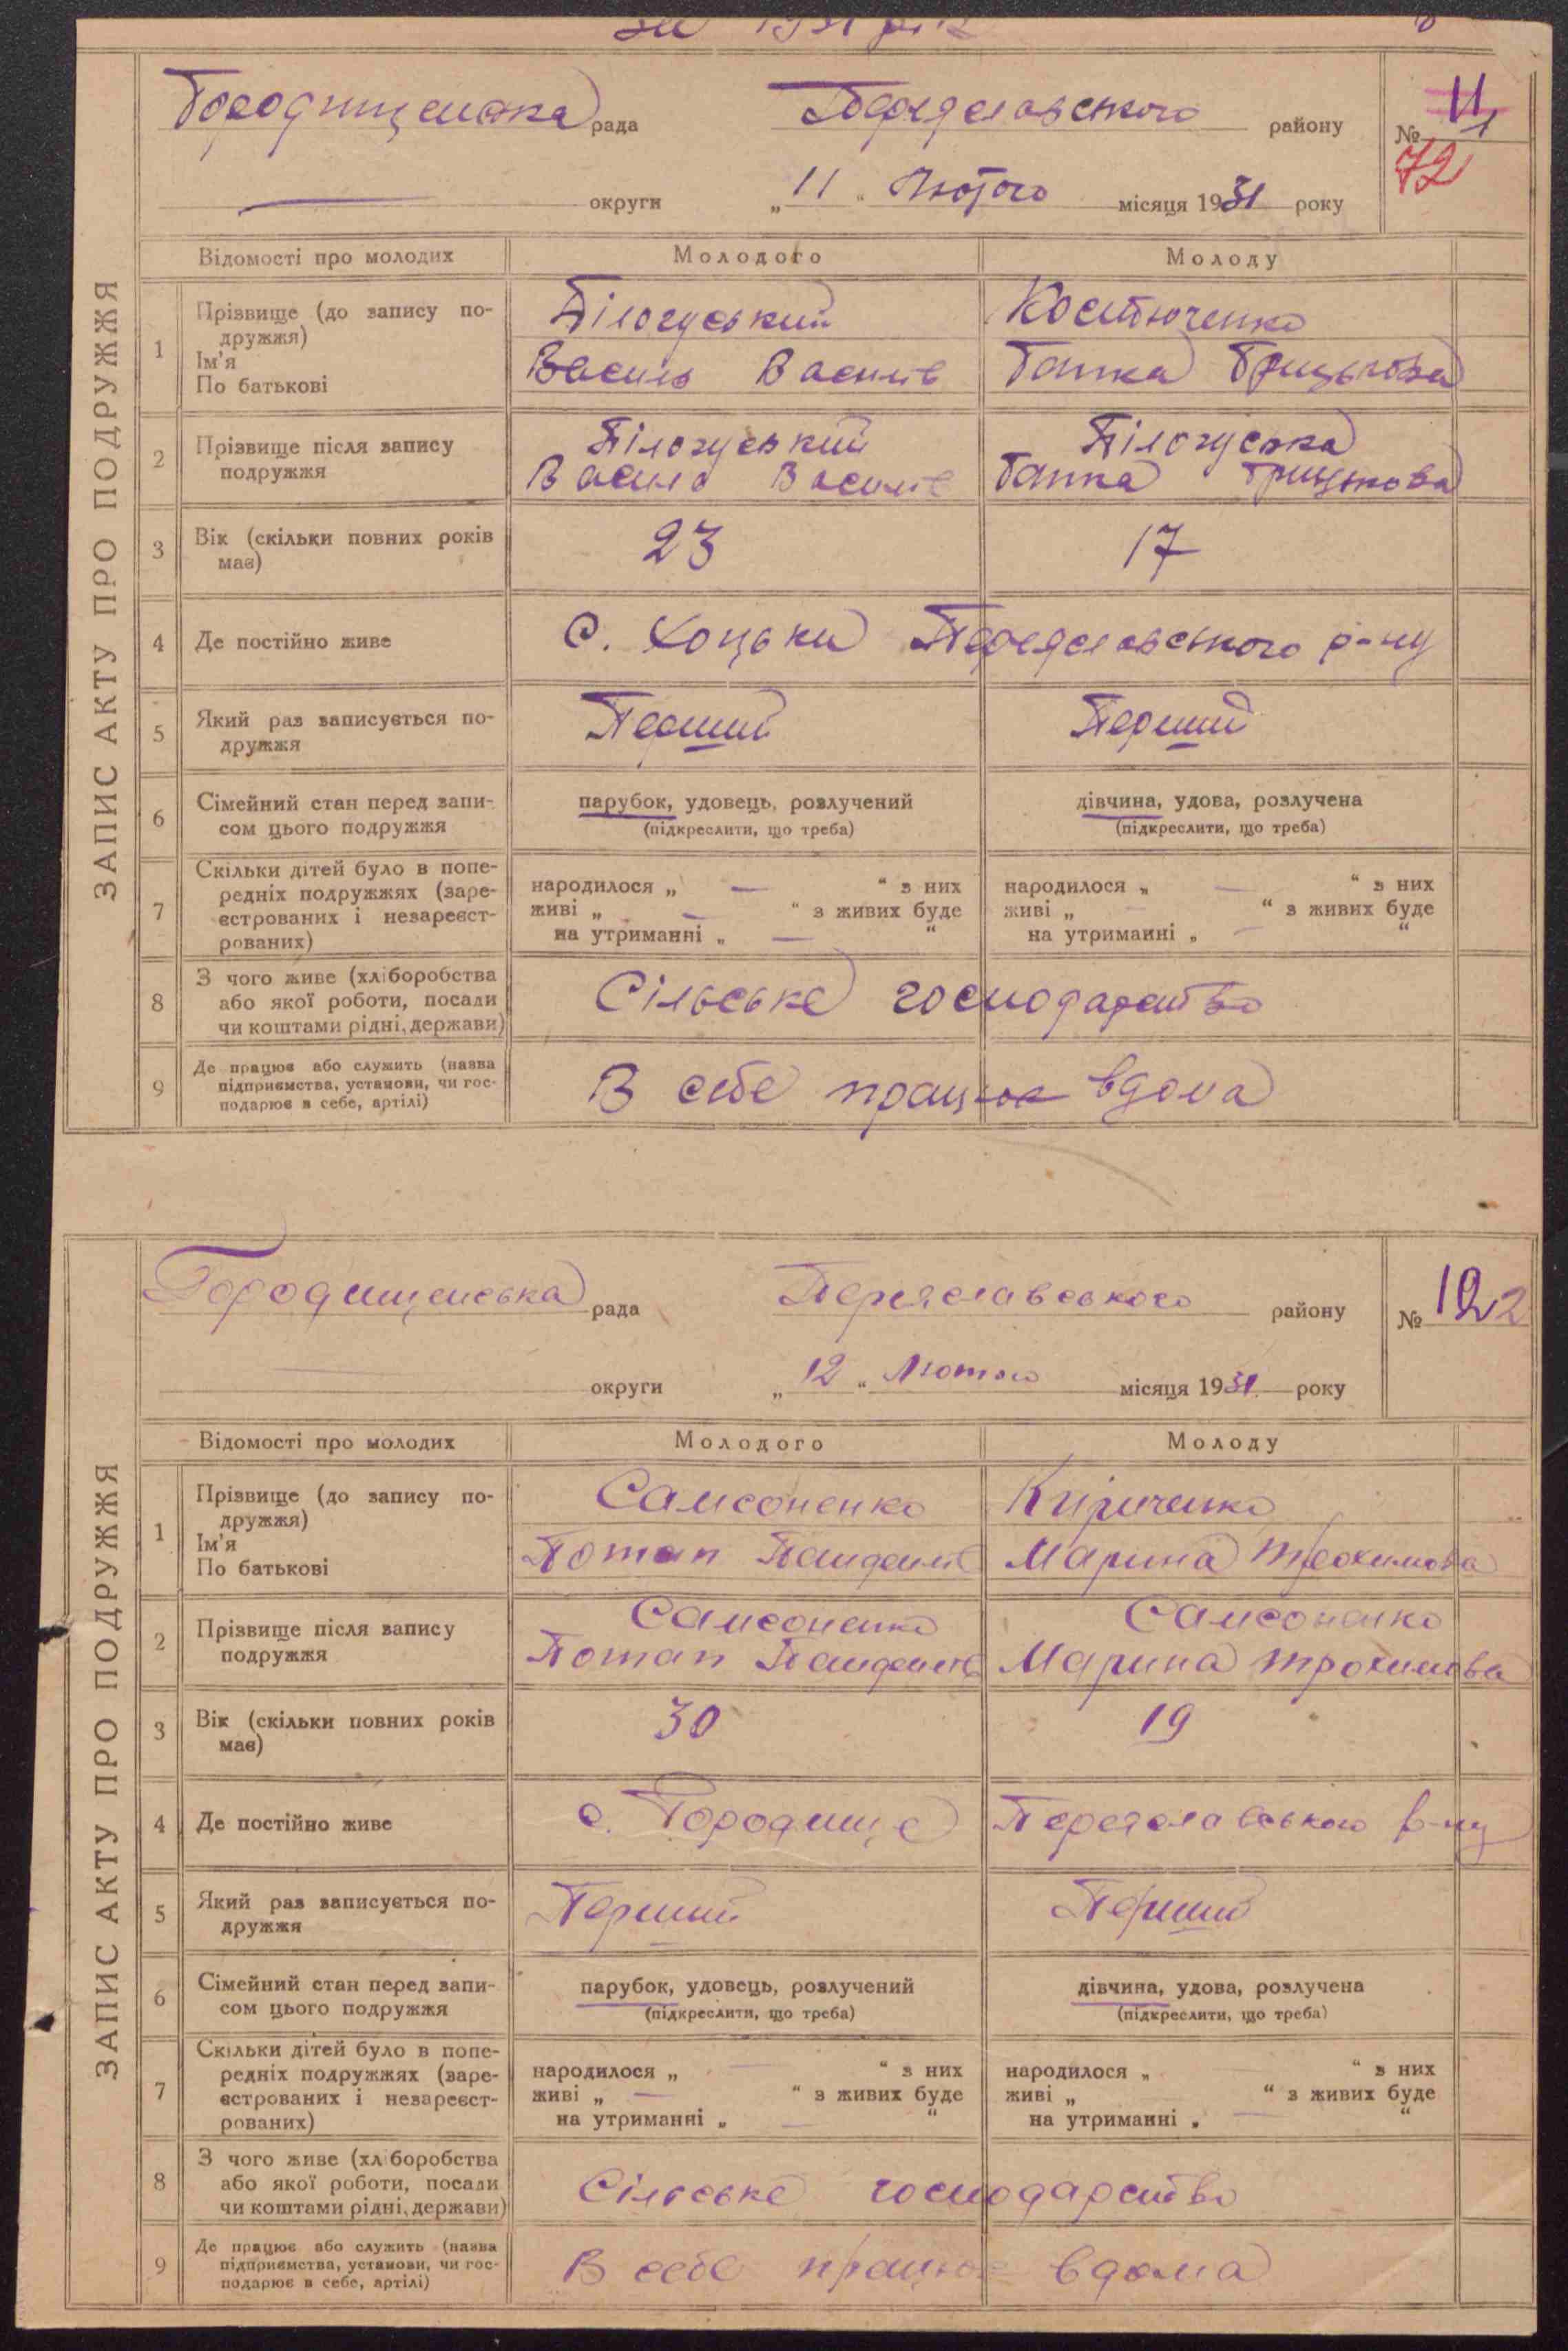 за 1931 рік
Городищенська рада Переяславського району № 11 1
72
округи „ 11 “ Лютого місяця 1931 року
ЗАПИС АКТУ ПРО ПОДРУЖЖЯ
Відомості про молодих Молодого Молоду
1 Прізвище (до запису по-
дружжя)
Ім'я
По батькові
Білоуський Костюченко
Василь Василів Ганна Грицькова
2 Прізвище після запису
подружжя
Василь Василів Ганна Грицькова
3 Вік (скільки повних років
має)
23 17
4 Де постійно живе с. Хоцьки Переяславського р-ну
5 Який раз записується по-
дружжя
Перший Перший
6 Сімейний стан перед запи-
сом цього подружжя
парубок, удовець, розлучений дівчина, удова, розлучена
(підкреслити, що треба) (підкреслити, що треба)
7 Скільки дітей було в попе-
редніх подружжях (заре-
єстрованих і незареєст-
рованих)
народилося „ — “ з них народилося „ — “ з них
живі „ — “ з живих буде живі „ — “ з живих буде
на утриманні „ — “ на утриманні „ — “
8 З чого живе (хліборобства
або якої роботи, посади
чи коштами рідні, держави)
Сільське господарство
9 Де працює або служить (назва
підприємства, установи, чи гос-
подарює в себе, артілі)
В себе працює вдома
Городищенська рада Переяславського району № 12 2
округи „ 12 “ Лютого місяця 1931 року
ЗАПИС АКТУ ПРО ПОДРУЖЖЯ
Відомості про молодих Молодого Молоду
1 Прізвище (до запису по-
дружжя)
Ім'я
По батькові
Самсоненко Кириченко
Потап Панделів Марина Трохимова
2 Прізвище після запису
подружжя
Самсоненко Самсоненко
Потап Панделів Марина Трохимова
3 Вік (скільки повних років
має)
30 19
4 Де постійно живе с. Городище Переяславського р-ну
5 Який раз записується по-
дружжя
Перший Перший
6 Сімейний стан перед запи-
сом цього подружжя
парубок, удовець, розлучений дівчина, удова, розлучена
(підкреслити, що треба) (підкреслити, що треба)
7 Скільки дітей було в попе-
редніх подружжях (заре-
єстрованих і незареєст-
рованих)
народилося „ — “ з них народилося „ “ з них
живі „ — “ з живих буде живі „ “ з живих буде
на утриманні „ — “ на утриманні „ — “
8 З чого живе (хліборобства
або якої роботи, посади
чи коштами рідні, держави)
Сільське господарство
9 Де працює або служить (назва
підприємства, установи, чи гос-
подарює в себе, артілі)
В себе працює вдома